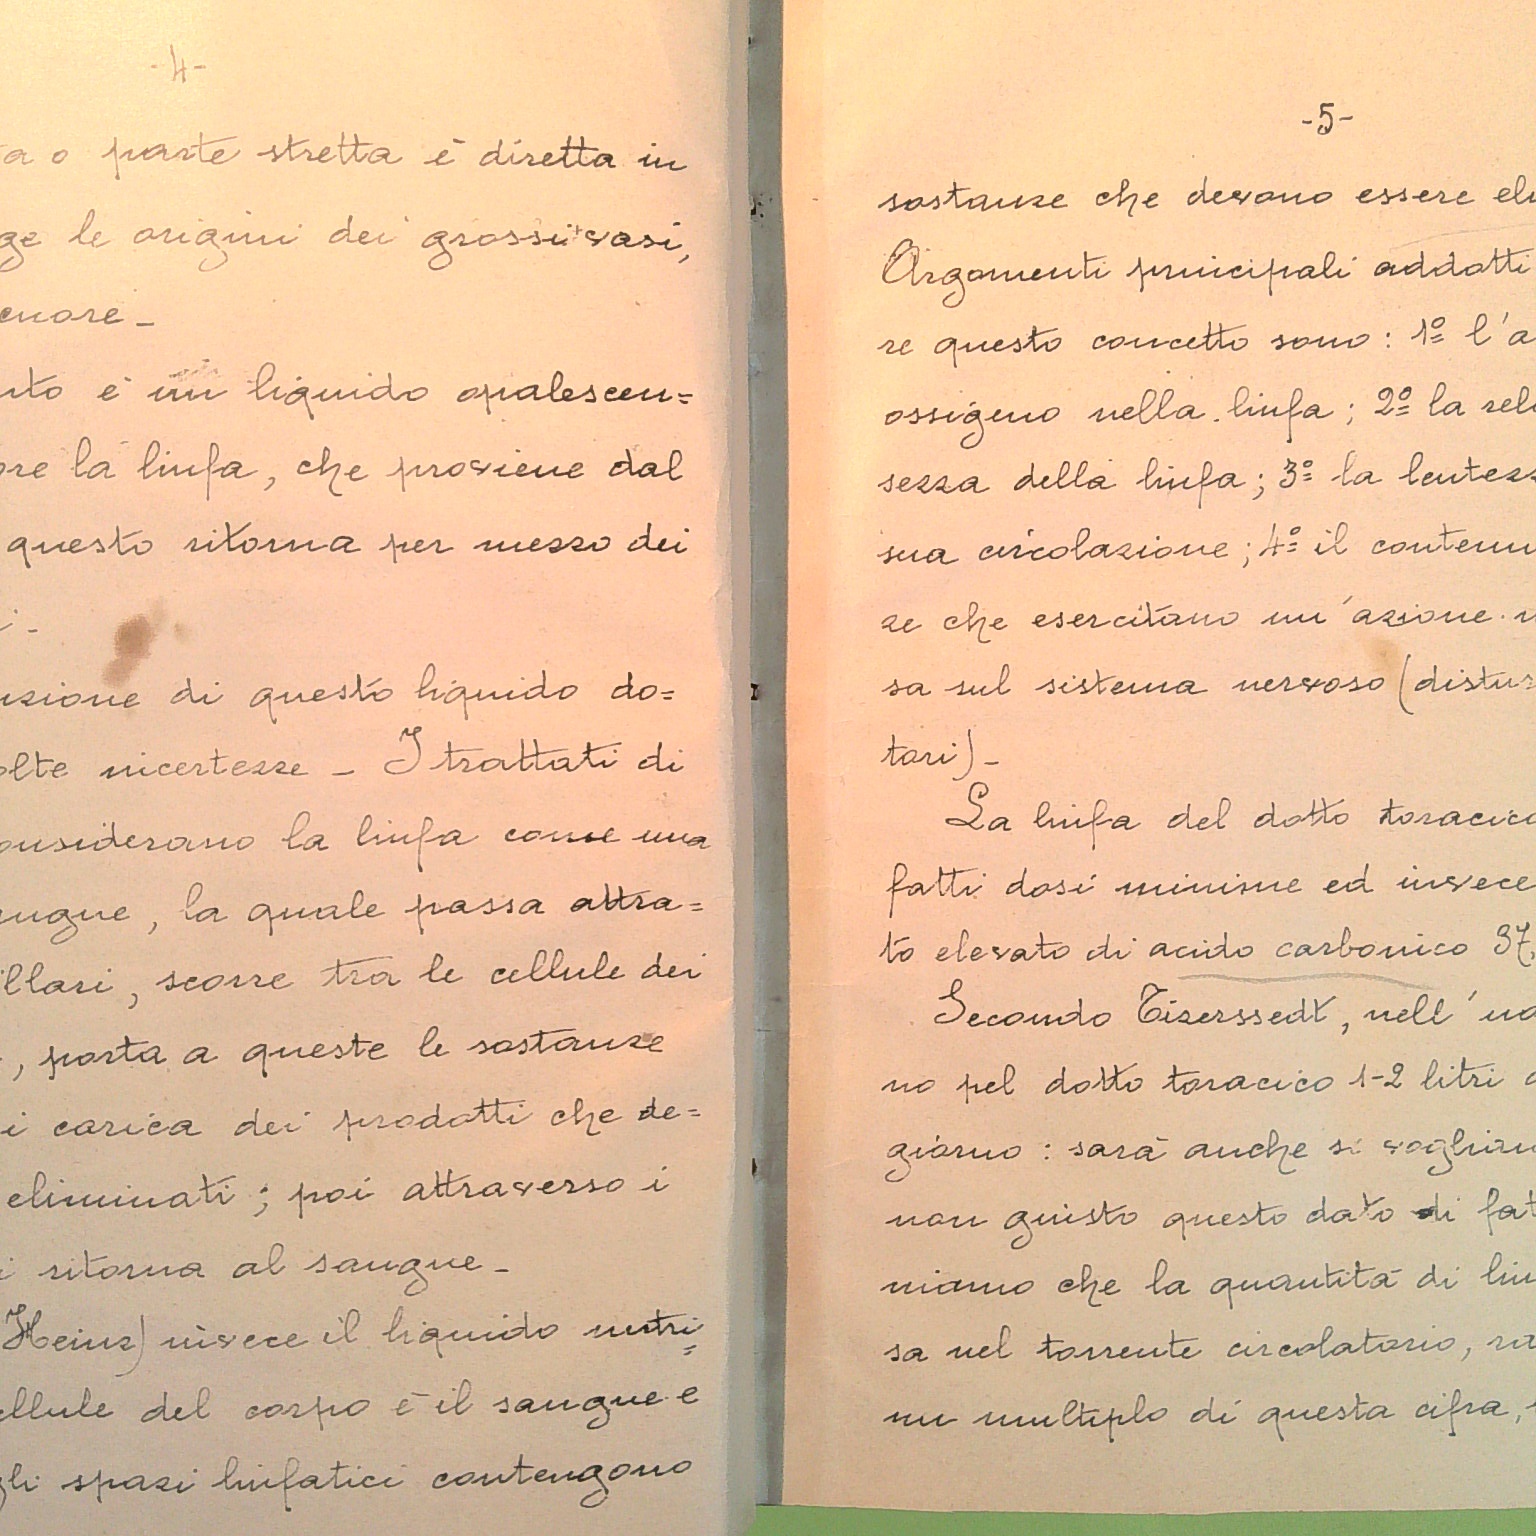 -4-
o parte stretta è diretta in
le origini dei grossi vasi,
cuore -
è un liquido opalescen=
la linfa, che proviene dal
questo ritorna per mezzo dei
di questo liquido do=
incertezze - I trattati di
considerano la linfa come una
la quale passa attra=
scorre tra le cellule dei
, porta a queste le sostanze
i carica dei prodotti che de=
eliminati; poi attraverso i
ritorna al sangue -
Heinz) invece il liquido nutri=
cellule del corpo è il sangue e
gli spazi linfatici contengono
-5-
sostanze che devono essere
Argomenti principali addotti
re questo concetto sono: 1º l'a
ossigeno nella linfa; 2º la
sezza della linfa; 3º la
sua circolazione; 4º il
ze che esercitano un'azione
sa sul sistema nervoso (distur
tori) -
La linfa del dotto toracico
fatti dosi minime ed invece
to elevato di acido carbonico 37,
Secondo Tizerssedt, nell'uo
no pel dotto toracico 1-2 litri
giorno: sarà anche se
non giusto questo dato di
niamo che la quantità di
sa nel torrente circolatorio,
un multiplo di questa cifra,